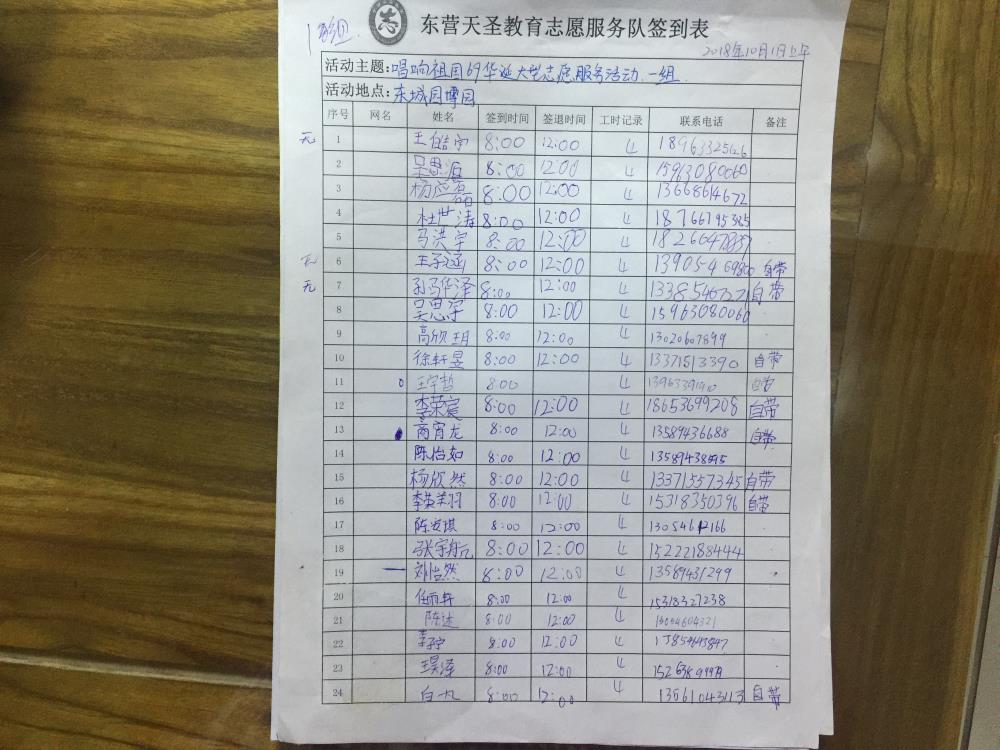 东营天圣教育志愿服务队签到表
2018年10月1日上午
活动主题:唱响祖国69华诞大型志愿服务活动.一组
活动地点:东城园博园
序号 网名 姓名 签到时间 签退时间 工时记录 联系电话 备注
无 1 王皓宇 8:00 12:00 4
2 吴思源 8:00 12:00 4 15963080060
3 杨应磊 8:00 12:00 4 13668614672
4 杜世涛 8:00 12:00 4 18766795325
5 马洪宇 8:00 12:00 4
无 6 王子涵 8:00 12:00 4 自带
无 7 孙马华泽 8:00 12:00 4 自带
8 吴思宇 8:00 12:00 4 15963080060
9 高欣玥 8:00 12:00 4 13020607899
10 徐轩昱 8:00 12:00 4 13371513390 自带
11 王宇哲 8:00 自带
12 李荣宸 8:00 12:00 4 18653699208 自带
13 商宵龙 8:00 12:00 4 13589436688 自带
14 陈怡如 8:00 12:00 4
15 杨欣然 8:00 12:00 4 13371557345 自带
16 李英羽 8:00 12:00 4 15318350396 自带
17 陈安琪 8:00 12:00 4
18 张宇航 8:00 12:00 4 15222188444
19 刘怡然 8:00 12:00 4 13589431299
20 任雨轩 8:00 12:00 4 15318327238
21 陈达 8:00 12:00 4 13054604321
22 8:00 12:00 4
23 8:00 12:00 4
24 白一凡 8:00 12:00 4 13561043113 自带